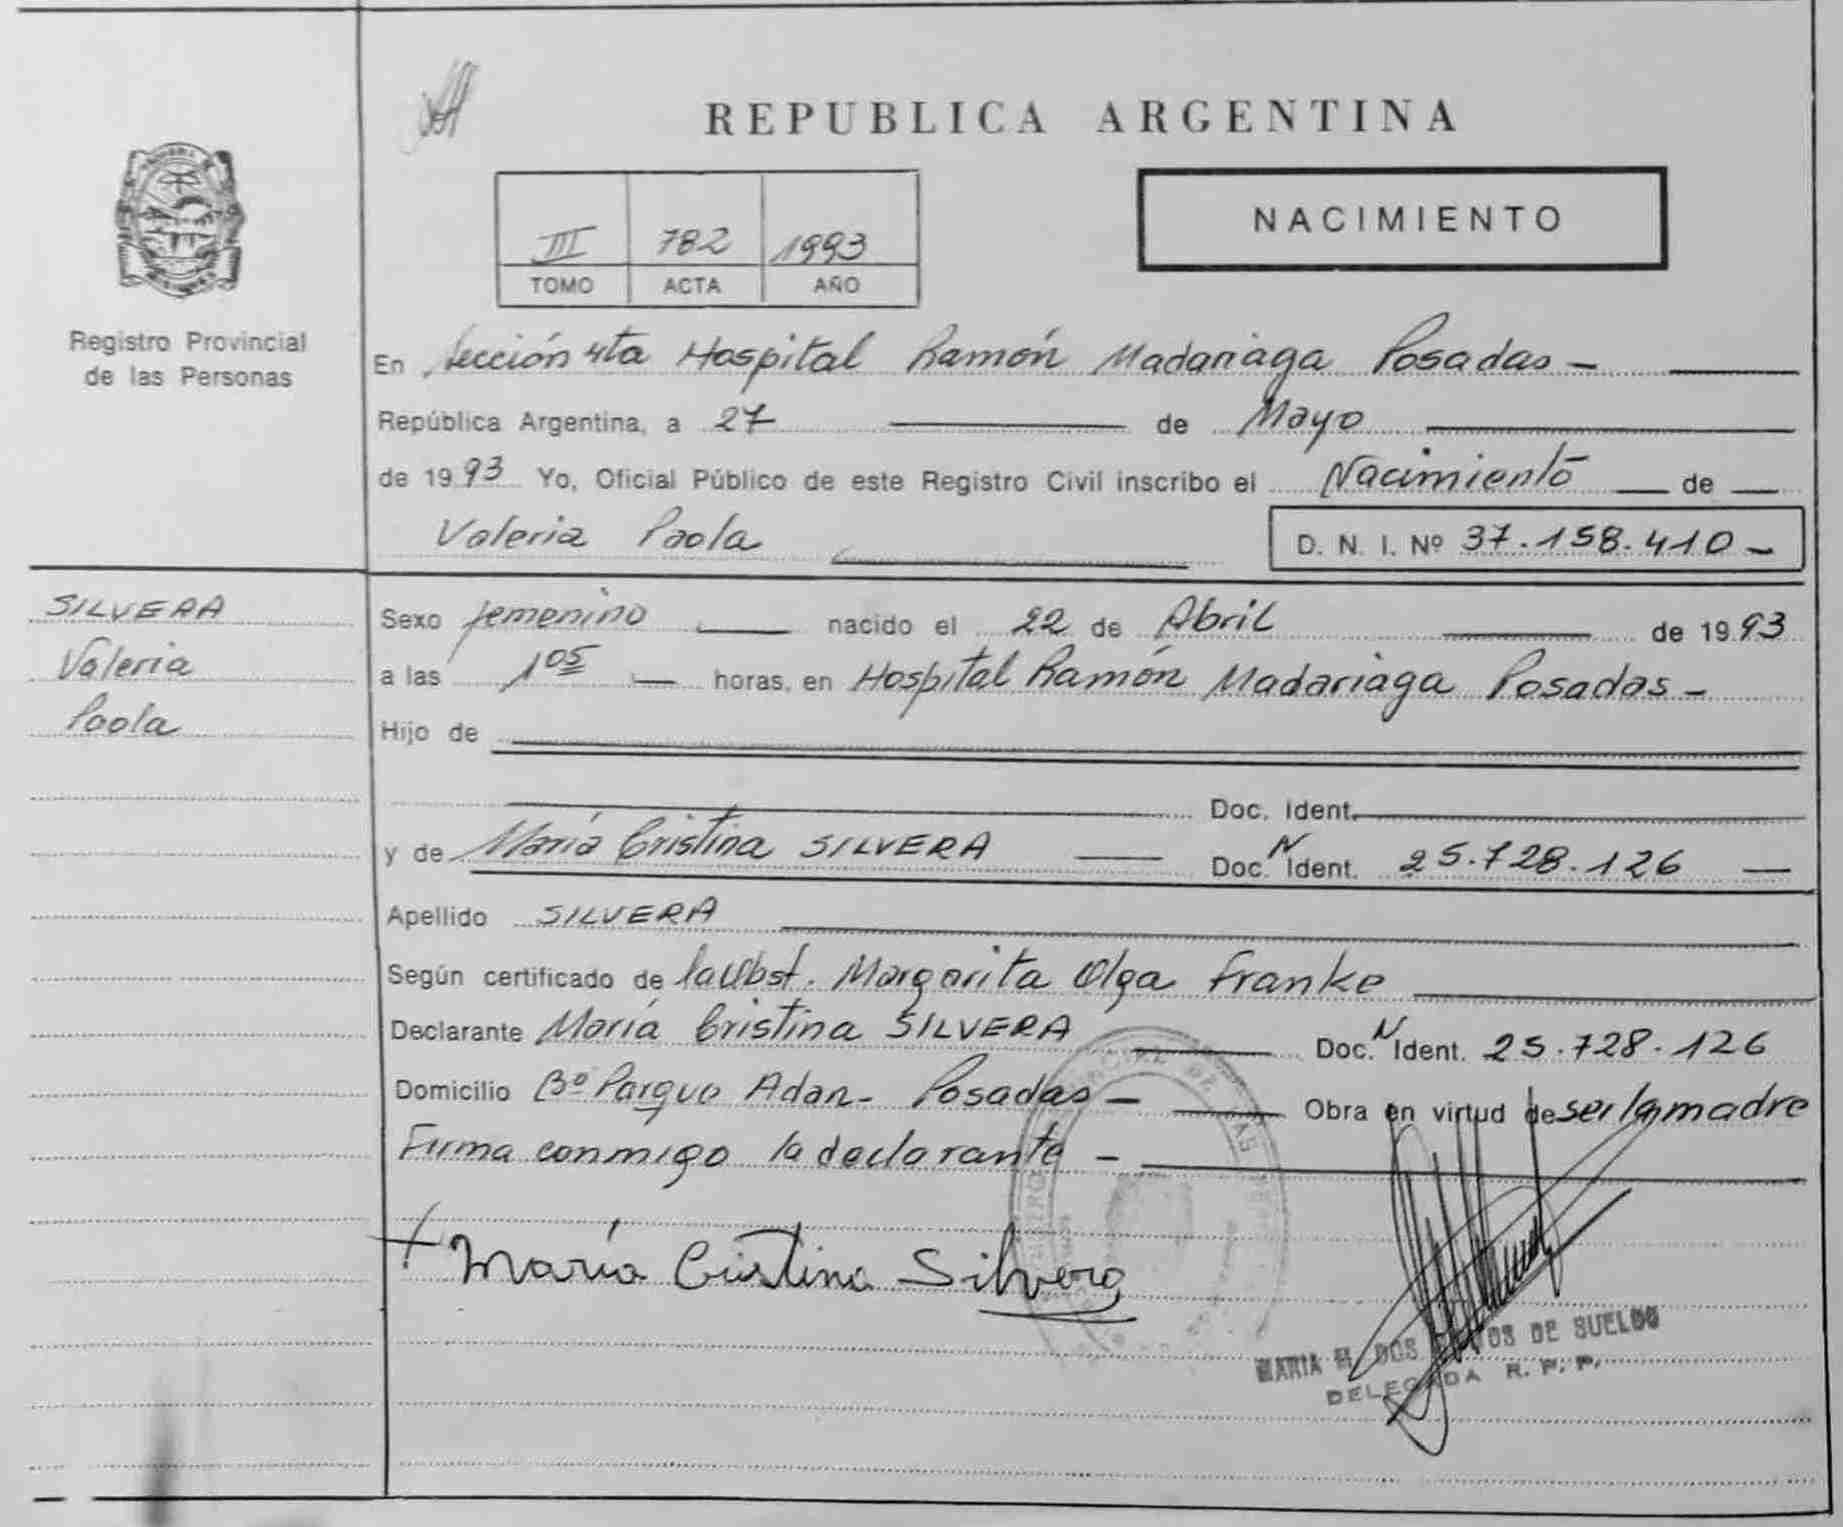 REPUBLICA ARGENTINA
III 782 1993
TOMO ACTA AÑO
NACIMIENTO
Registro Provincial
de las Personas
En Sección 4ta Hospital Ramón Madariaga Posadas –
República Argentina, a 27 de Mayo
de 1993 Yo, Oficial Público de este Registro Civil inscribo el Nacimiento de
Valeria Paola
D. N. I. Nº 37.158.410 –
SILVERA
Valeria
Paola
Sexo femenino nacido el 22 de Abril de 1993
a las 1 05 horas, en Hospital Ramón Madariaga Posadas –
Hijo de
Doc. Ident.
y de María Cristina SILVERA Doc. N Ident. 25.728.126
Apellido SILVERA
Según certificado de la Obst. Margarita Olga Franke
Declarante María Cristina SILVERA Doc. N Ident. 25.728.126
Domicilio Bº Parque Adan – Posadas – Obra en virtud de ser la madre
Firma conmigo la declarante –
María Cristina Silvera
MARIA DOS DE SUELDO
DELEGADA R. P. P.